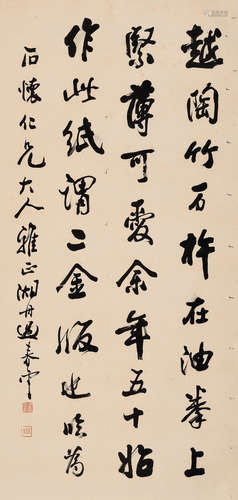 越陶竹万杵在油拳上
紧薄可爱余年五十始
作此纸谓之金版也临为
石怀仁兄大人雅正湘舟